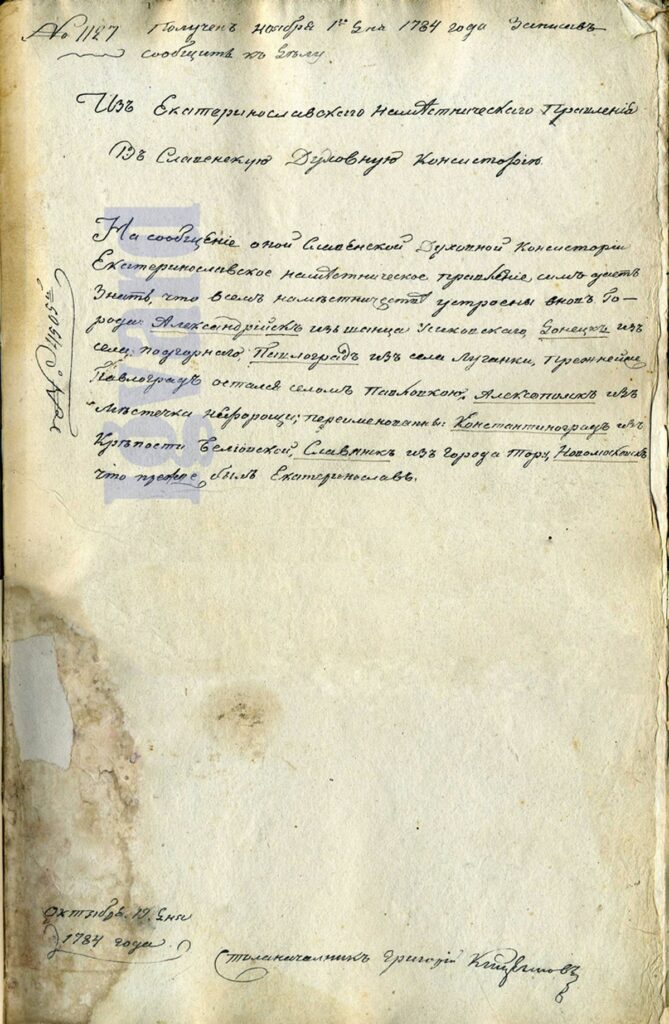 № 1127 Получен ноября 1го дня 1784 года Записавъ
сообщить къ делу
Изъ Екатеринославскаго намѣстническаго Правленія
Въ Славенскую Духовную Консисторію
На сообщеніе оной Славенской Духовной Консисторіи
Екатеринославское намѣстническое правленіе симъ даетъ
знать, что всемъ намѣстничествѣ устроены вновь Го-
рода: Александрійскъ изъ шанца Усиковскаго, Донецкъ изъ
села: подгорнаго Павлоградъ изъ села Луганки, прежней же
Павлоградъ остался селомъ Павловкою, Алексополь изъ
Мѣстечка нефорощи; переименованны: Константиноградъ изъ
Крѣпости Белiовской, Славянскъ изъ города Тору, Новомосковскъ
что прежде былъ Екатеринославъ.
октября 19 дня
1784 года.
Столоначалникъ Григорій